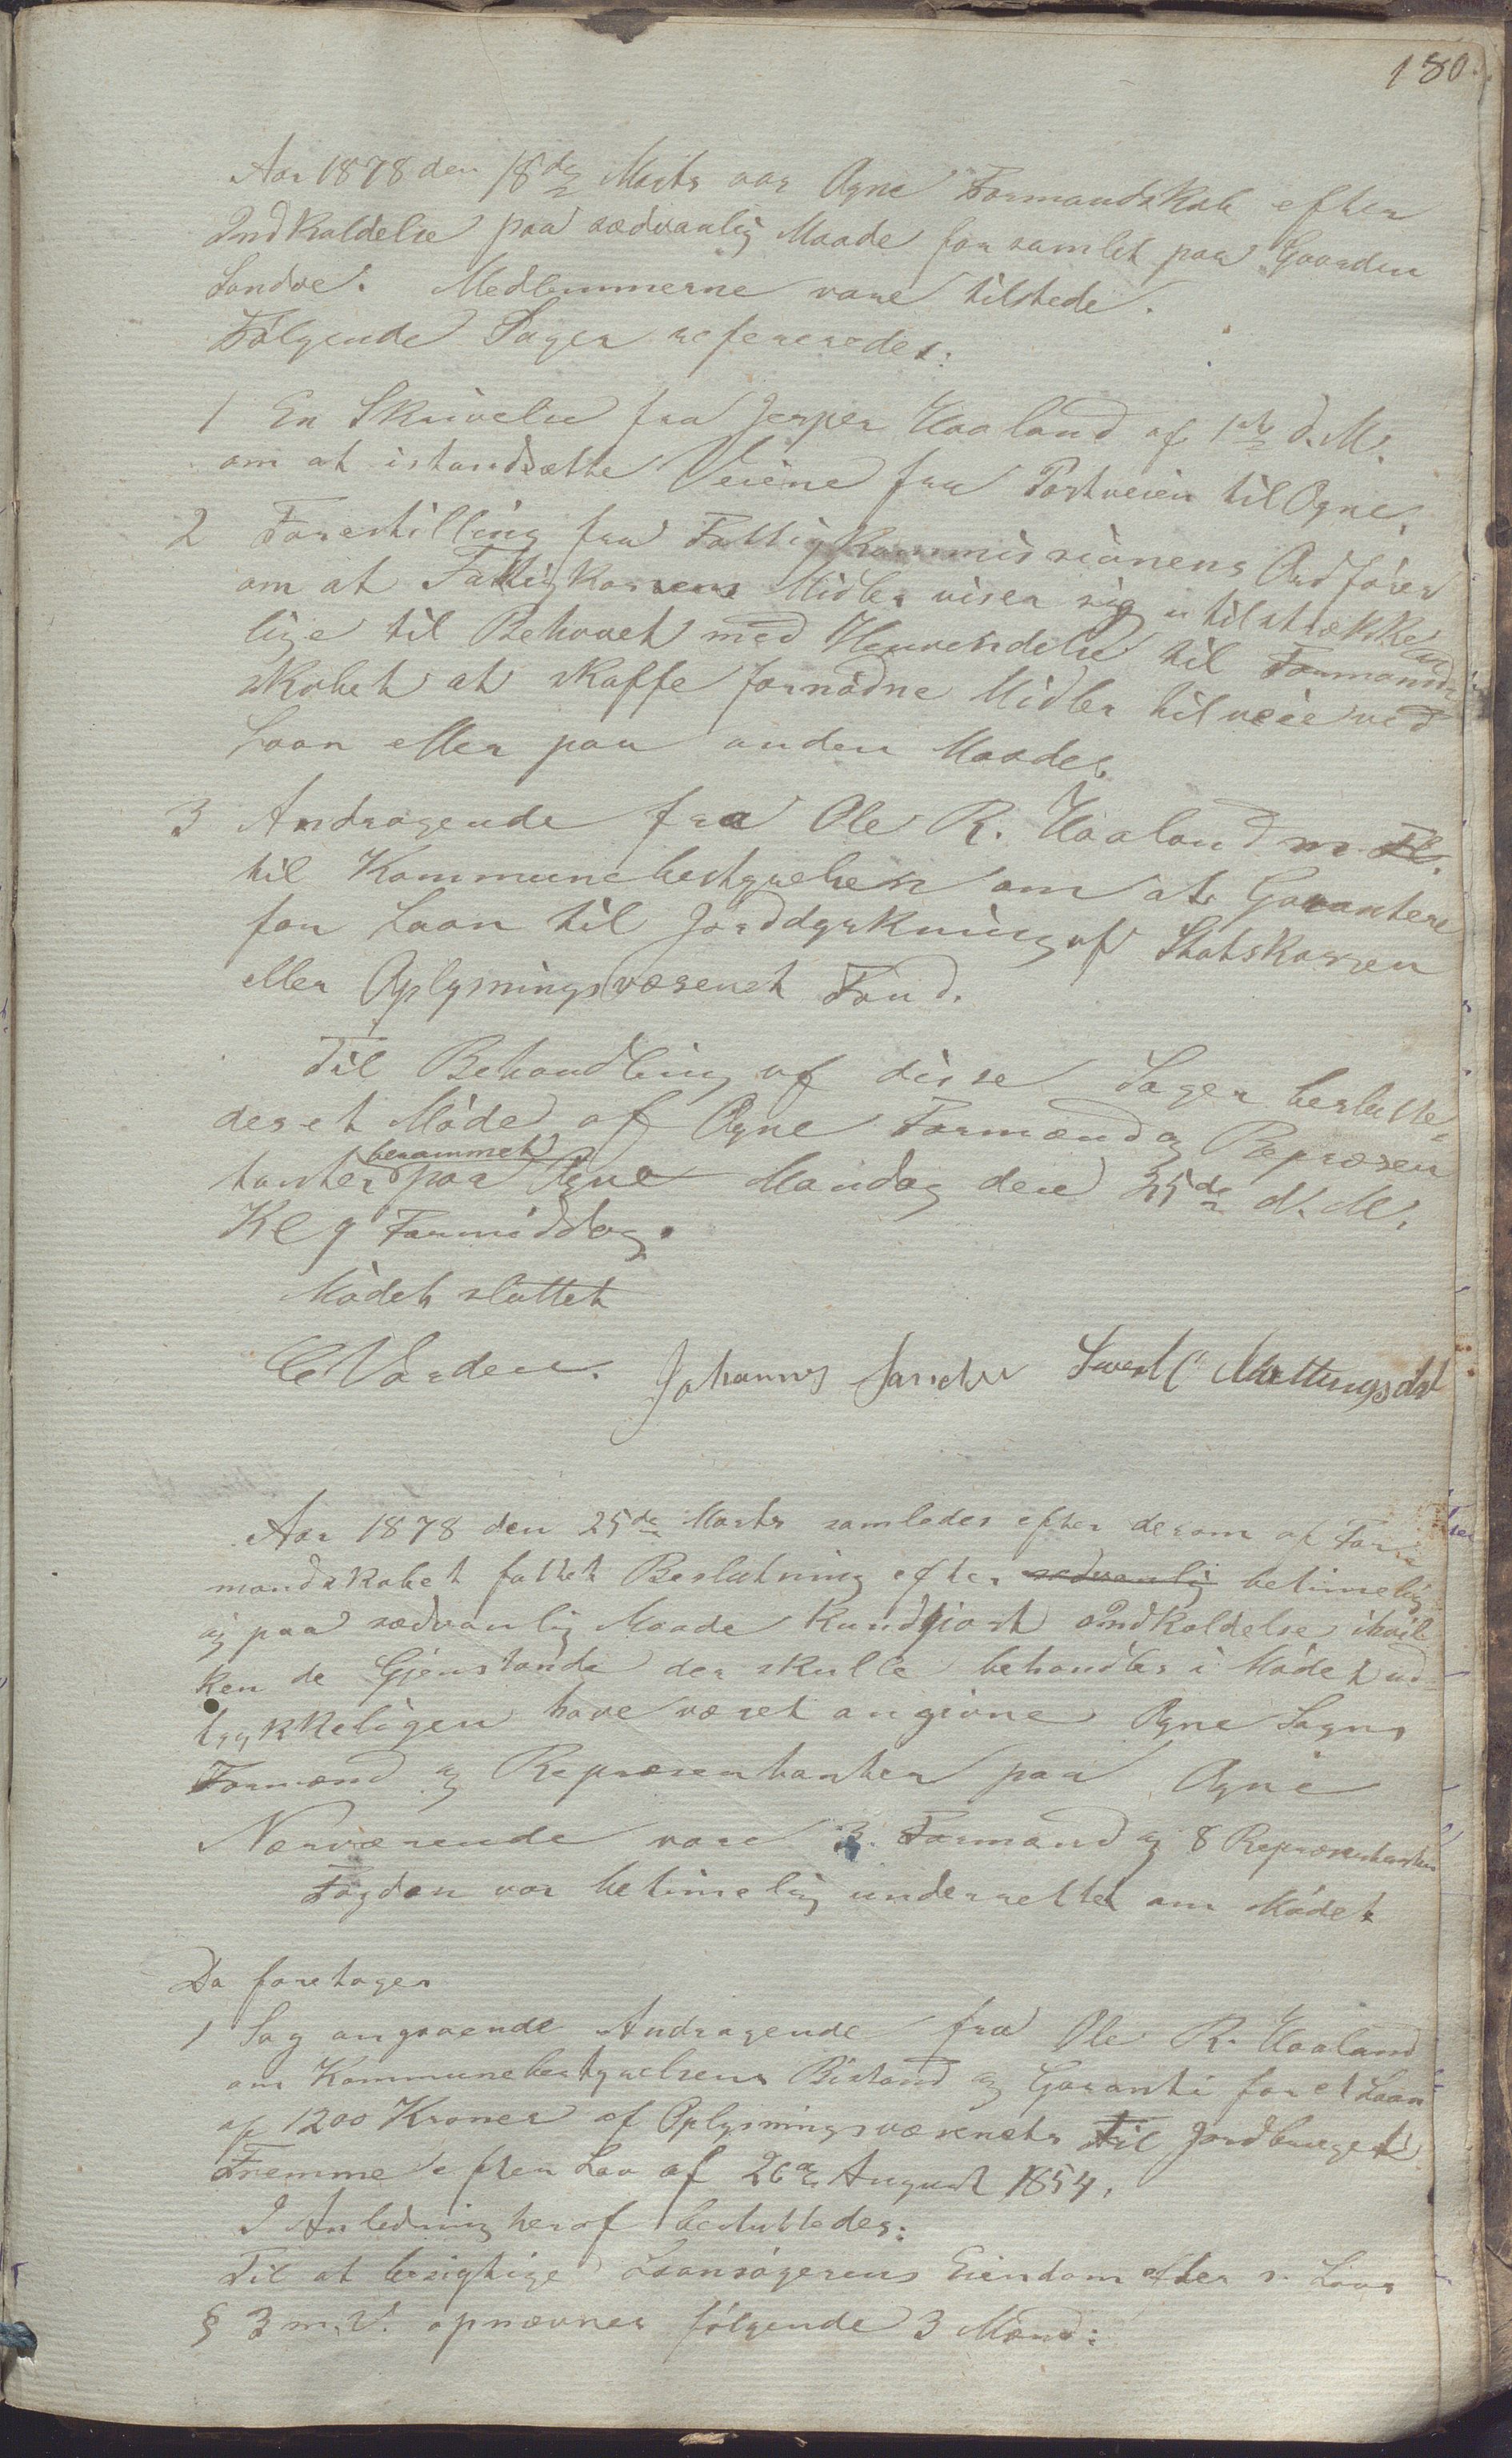 180.
Aar 1878 den 18de Marts var Ogne Formandskab efter
Indkaldelse paa sædvanlig Maade forsamlet paa Gaarden
Sandve. Medlemmerne vare tilstede.
Følgende Sager refereredes:
1 En Skrivelse fra Jesper Haaland af 1ste d. M.
om at istandsætte Veiene fra Postveien til Ogne.
2 Forestilling fra Fattigkommissionens Ordfører
om at Fattigkassens Midler viser sig utilstrække
lige til Behovet med Henvendelse til Formand-
skabet at skaffe fornødne Midler tilveie ved
Laan eller paa anden Maade.
3 Andragende fra Ole R. Haaland m. Fl.
til Kommunebestyrelsen om at Garantere
for Laan til Jorddyrkning af Statskassen
eller Oplysningsvæsenet Fond.
Til Behandling af disse Sager beslutte-
des et Møde af Ogne Formænd og Repræsen
tanter berammet paa Ogne Mandag den 25de d. M.
Kl 9 Formiddag.
Mødet sluttet
Johannes Sandve Sivert C. Mattingsdal
Aar 1878 den 25de Marts samledes efter derom af For-
mandskabet fattet Beslutning efter sedvanlig betimelig
og paa sædvanlig Maade Kundgjort Indkaldelse ihvil
ken de Gjenstande der skulle behandles i Mødet ud-
trykkeligen have været angivne Ogne Sogns
Formænd og Repræsentanter paa Ogne
Nærværende vare 3. Formænd og 8 Repræsentanter
Fogden var betimelig underrettet om Mødet
Da foretages
1 Sag angaaende Andragende fra Ole R. Haaland
om Kommunebestyrelsens Bistand og Garanti for et Laan
af 1200 Kroner af Oplysningsvæsenets til Jordbruget
Fremme efter Lov af 26de August 1854.
I Anledning heraf besluttedes:
Til at besigtige Laansøgerens Eiendom efter s. Lovs
§ 3 m. V. opnævnes følgende 3 Mænd: